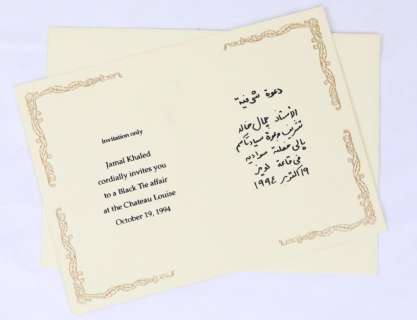 Invitation only
Jamal Khaled
cordially invites you
to a Black Tie affair
at the Chateau Louise
October 19, 1994
دعوة شرفية
الأستاذ جمال خالد
يتشرف بدعوة سيادتكم
إلى حفلة
في قاعة لويز
١٩ أكتوبر ١٩٩٤